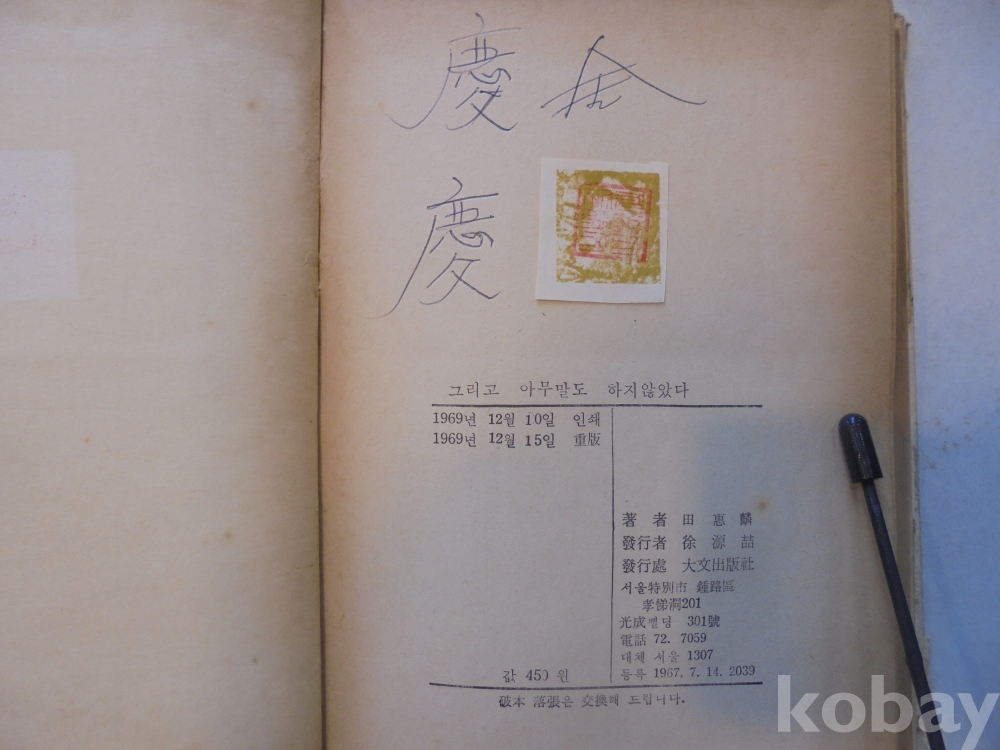 慶
慶
그리고 아무말도 하지않았다
1969년 12월 10일 인쇄
1969년 12월 15일 重版
著者 田惠麟
發行者 徐源喆
發行處 大文出版社
서울特別市 鍾路區
孝悌洞201
光成삘딩 301號
電話 72. 7059
대체 서울 1307
등록 1967. 7. 14. 2039
값 450 원
破本 落張은 交換해 드립니다.
kobay